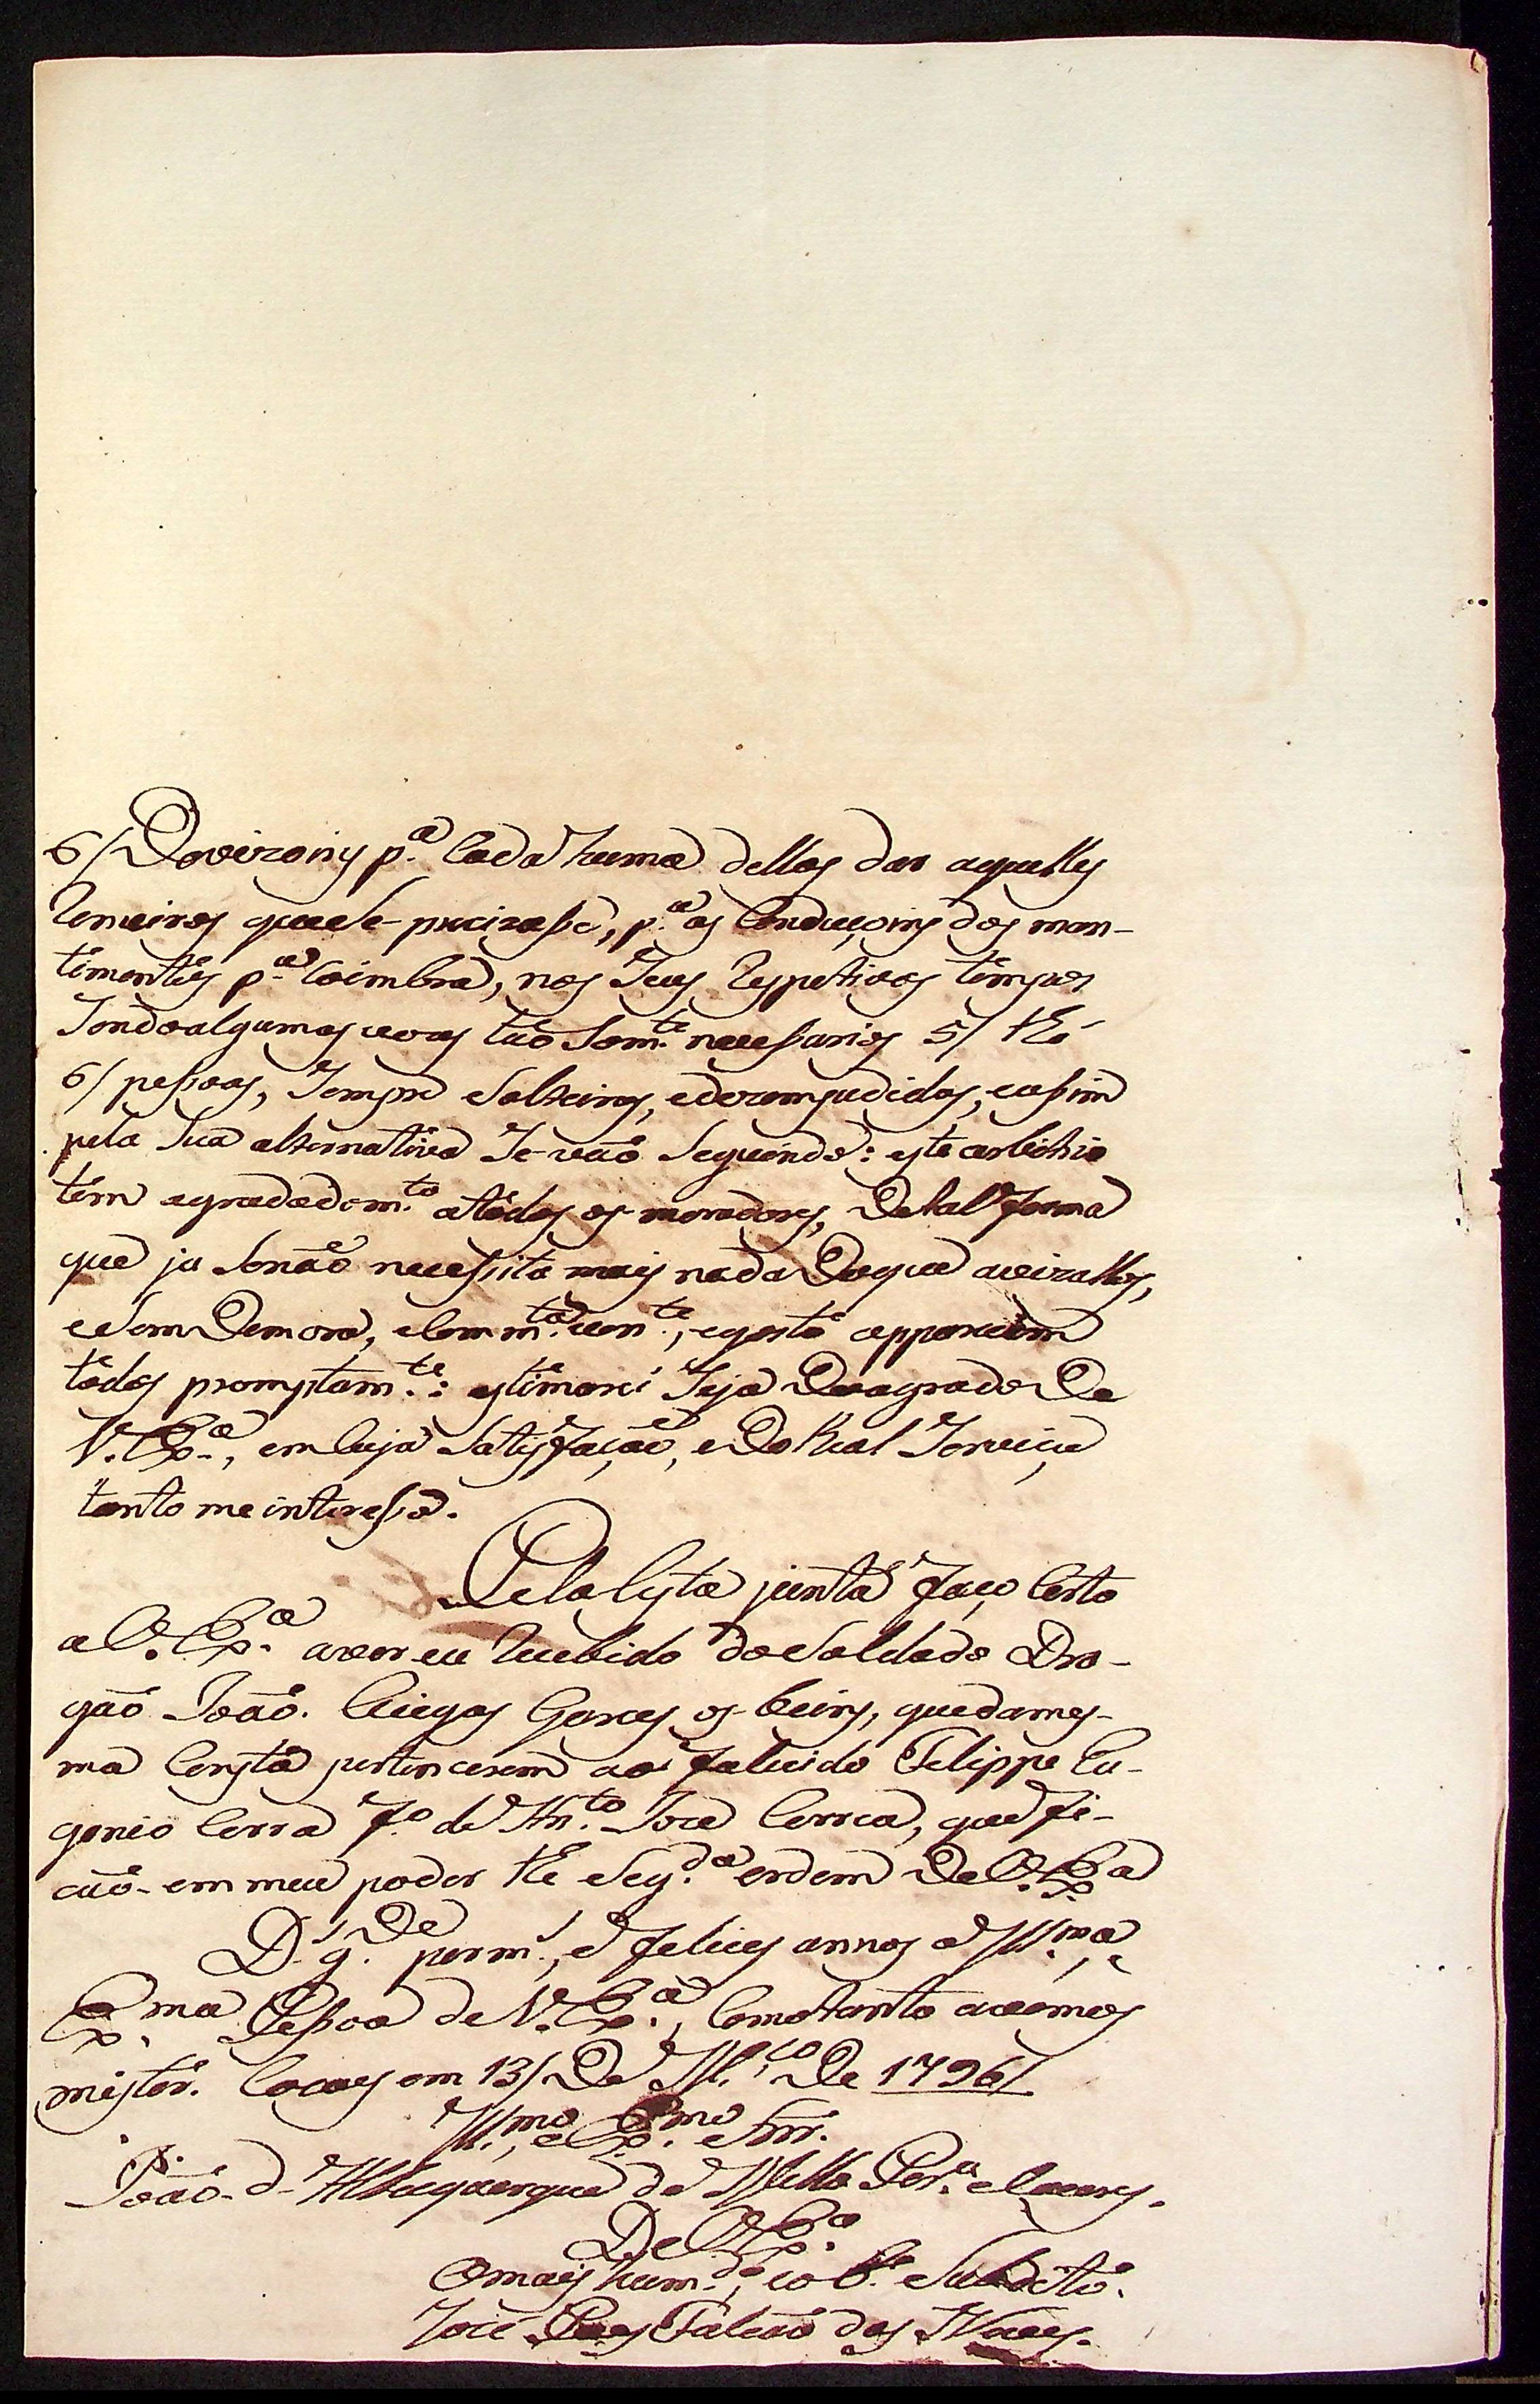 6/ Devizoins p.ª Cada huma dellas dar aquelles
Remeiros que Se-precizasse, p.ª as Conduçoins dos man-
timentos p.ª Coimbra, nos Seus Respetivos tempos
Sendo algumas vezes tão Som.te necessarios 5/ thé
6/ pessoas, Sempre Solteiros, e dezempedidos, e assim
pela Sua alternativa Se-vaõ Seguindo: este arbitrio
tem agradado m.to a todos os moradores, De tal forma
que ja Senaõ necessita mais nada Do que avizallos,
e Sem Demora, e Com m.ta von.te, e gosto apparecem
todos promptam.te: estimarei Seja Do agrado De
V. Ex.ª, em Cuja Satisfaçaõ, e Do Real Serviço
tanto me interesso.
Pela lista junta faço Certo
a V. Ex.ª aver eu Recebido do Soldado Dra-
gaõ Joaõ Viegas Garces os beins, que da mes-
ma Consta pertencerem ao falecido Felippe Eu-
genio Correa f.º de An.to Joze Correa, que fi-
caõ em meu poder thé Seg.da ordem De V. Ex.a
D.s g.De por m.s, e felices annos a Ill.ma, e
Ex.ma Pessoa de V. Ex.ª, Como tanto avemos
mister. Cocaes em 13/ De M.ço De 1796/
Ill.mo, e Ex.mo Snr.
Joaõ d' Albuquerque de Mello Per.ª e Caceres.
De V. Ex.ª
O mais hum.de, e o b.te Subdito.
Joze Paes Falcaõ das Neves.